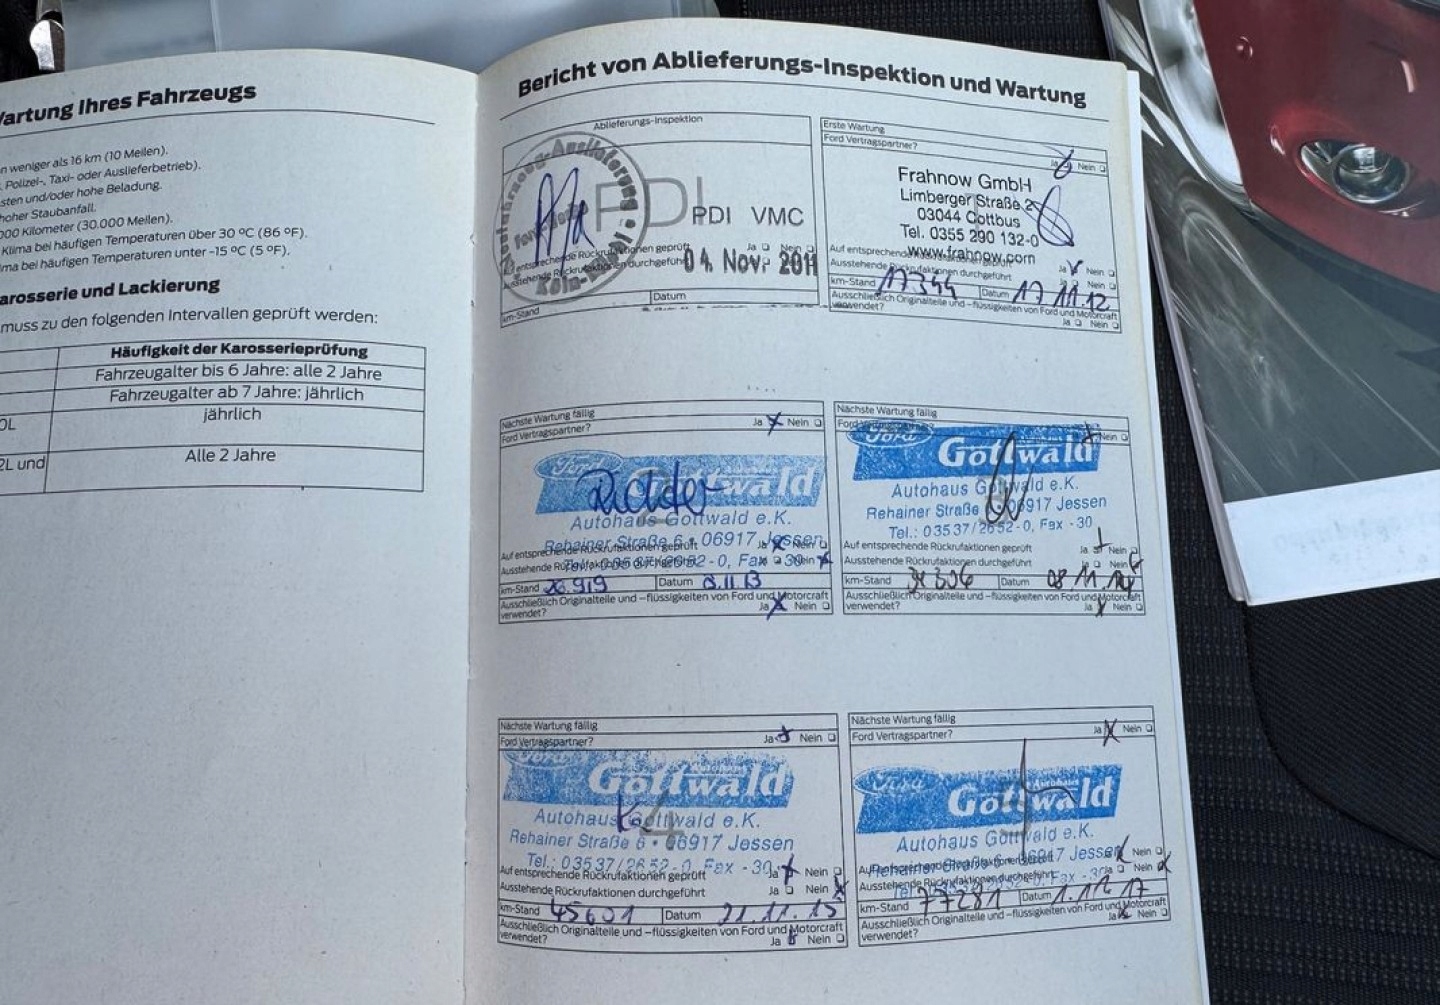 Wartung Ihres Fahrzeugs
n weniger als 16 km (10 Meilen).
Polizei-, Taxi- oder Auslieferbetrieb).
sten und/oder hohe Beladung.
hoher Staubanfall.
000 Kilometer (30.000 Meilen).
Klima bei häufigen Temperaturen über 30 °C (86 °F).
ma bei häufigen Temperaturen unter -15 °C (5 °F).
arosserie und Lackierung
muss zu den folgenden Intervallen geprüft werden:
Häufigkeit der Karosserieprüfung
Fahrzeugalter bis 6 Jahre: alle 2 Jahre
Fahrzeugalter ab 7 Jahre: jährlich
0L jährlich
2L und Alle 2 Jahre
Bericht von Ablieferungs-Inspektion und Wartung
Ablieferungs-Inspektion
PDI
PDI VMC
Ja Nein
entsprechende Rückrufaktionen geprüft
Ausstehende Rückrufaktionen durchgeführt
04. Nov. 2011
km-Stand Datum
Erste Wartung
Ford Vertragspartner?
Ja Nein
Frahnow GmbH
Limberger Straße 2
03044 Cottbus
Tel. 0355 290 132-0
www.frahnow.com
Auf entsprechende Rückrufaktionen geprüft
Ausstehende Rückrufaktionen durchgeführt Ja Nein
km-Stand 17344 Datum 17.11.12
Ausschließlich Originalteile und -flüssigkeiten von Ford und Motorcraft
verwendet? Ja Nein
Nächste Wartung fällig
Ford Vertragspartner? Ja Nein
Ford Gottwald
Autohaus Gottwald e.K.
Rehainer Straße 6 • 06917 Jessen
Auf entsprechende Rückrufaktionen geprüft Ja Nein
Ausstehende Rückrufaktionen durchgeführt Nein
km-Stand 26.919 Datum
Ausschließlich Originalteile und -flüssigkeiten von Ford und Motorcraft
verwendet? Ja Nein
Nächste Wartung fällig
Ford Nein
Ford Gottwald
Autohaus Gottwald e.K.
Rehainer Straße 06917 Jessen
Tel.: 03537/2652-0, Fax -30
Auf entsprechende Rückrufaktionen geprüft Ja Nein
Ausstehende Rückrufaktionen durchgeführt Ja Nein
km-Stand Datum 08.11.14
Ausschließlich Originalteile und -flüssigkeiten von Ford und Motorcraft
verwendet? Ja Nein
Nächste Wartung fällig
Ford Vertragspartner? Ja Nein
Ford Gottwald
Autohaus Gottwald e.K.
Rehainer Straße 6 • 06917 Jessen
Tel.: 03537/2652-0, Fax -30
Auf entsprechende Rückrufaktionen geprüft Ja Nein
Ausstehende Rückrufaktionen durchgeführt Ja Nein
km-Stand 45601 Datum 21.11.15
Ausschließlich Originalteile und -flüssigkeiten von Ford und Motorcraft
verwendet? Ja Nein
Nächste Wartung fällig
Ford Vertragspartner? Ja Nein
Ford Autohaus Gottwald
Autohaus Gottwald e.K.
Rehainer Straße 6 • 06917 Jessen
Nein
Ausstehende Rückrufaktionen durchgeführt Ja Nein
km-Stand 77281 Datum
Ausschließlich Originalteile und -flüssigkeiten von Ford und Motorcraft
verwendet? Ja Nein